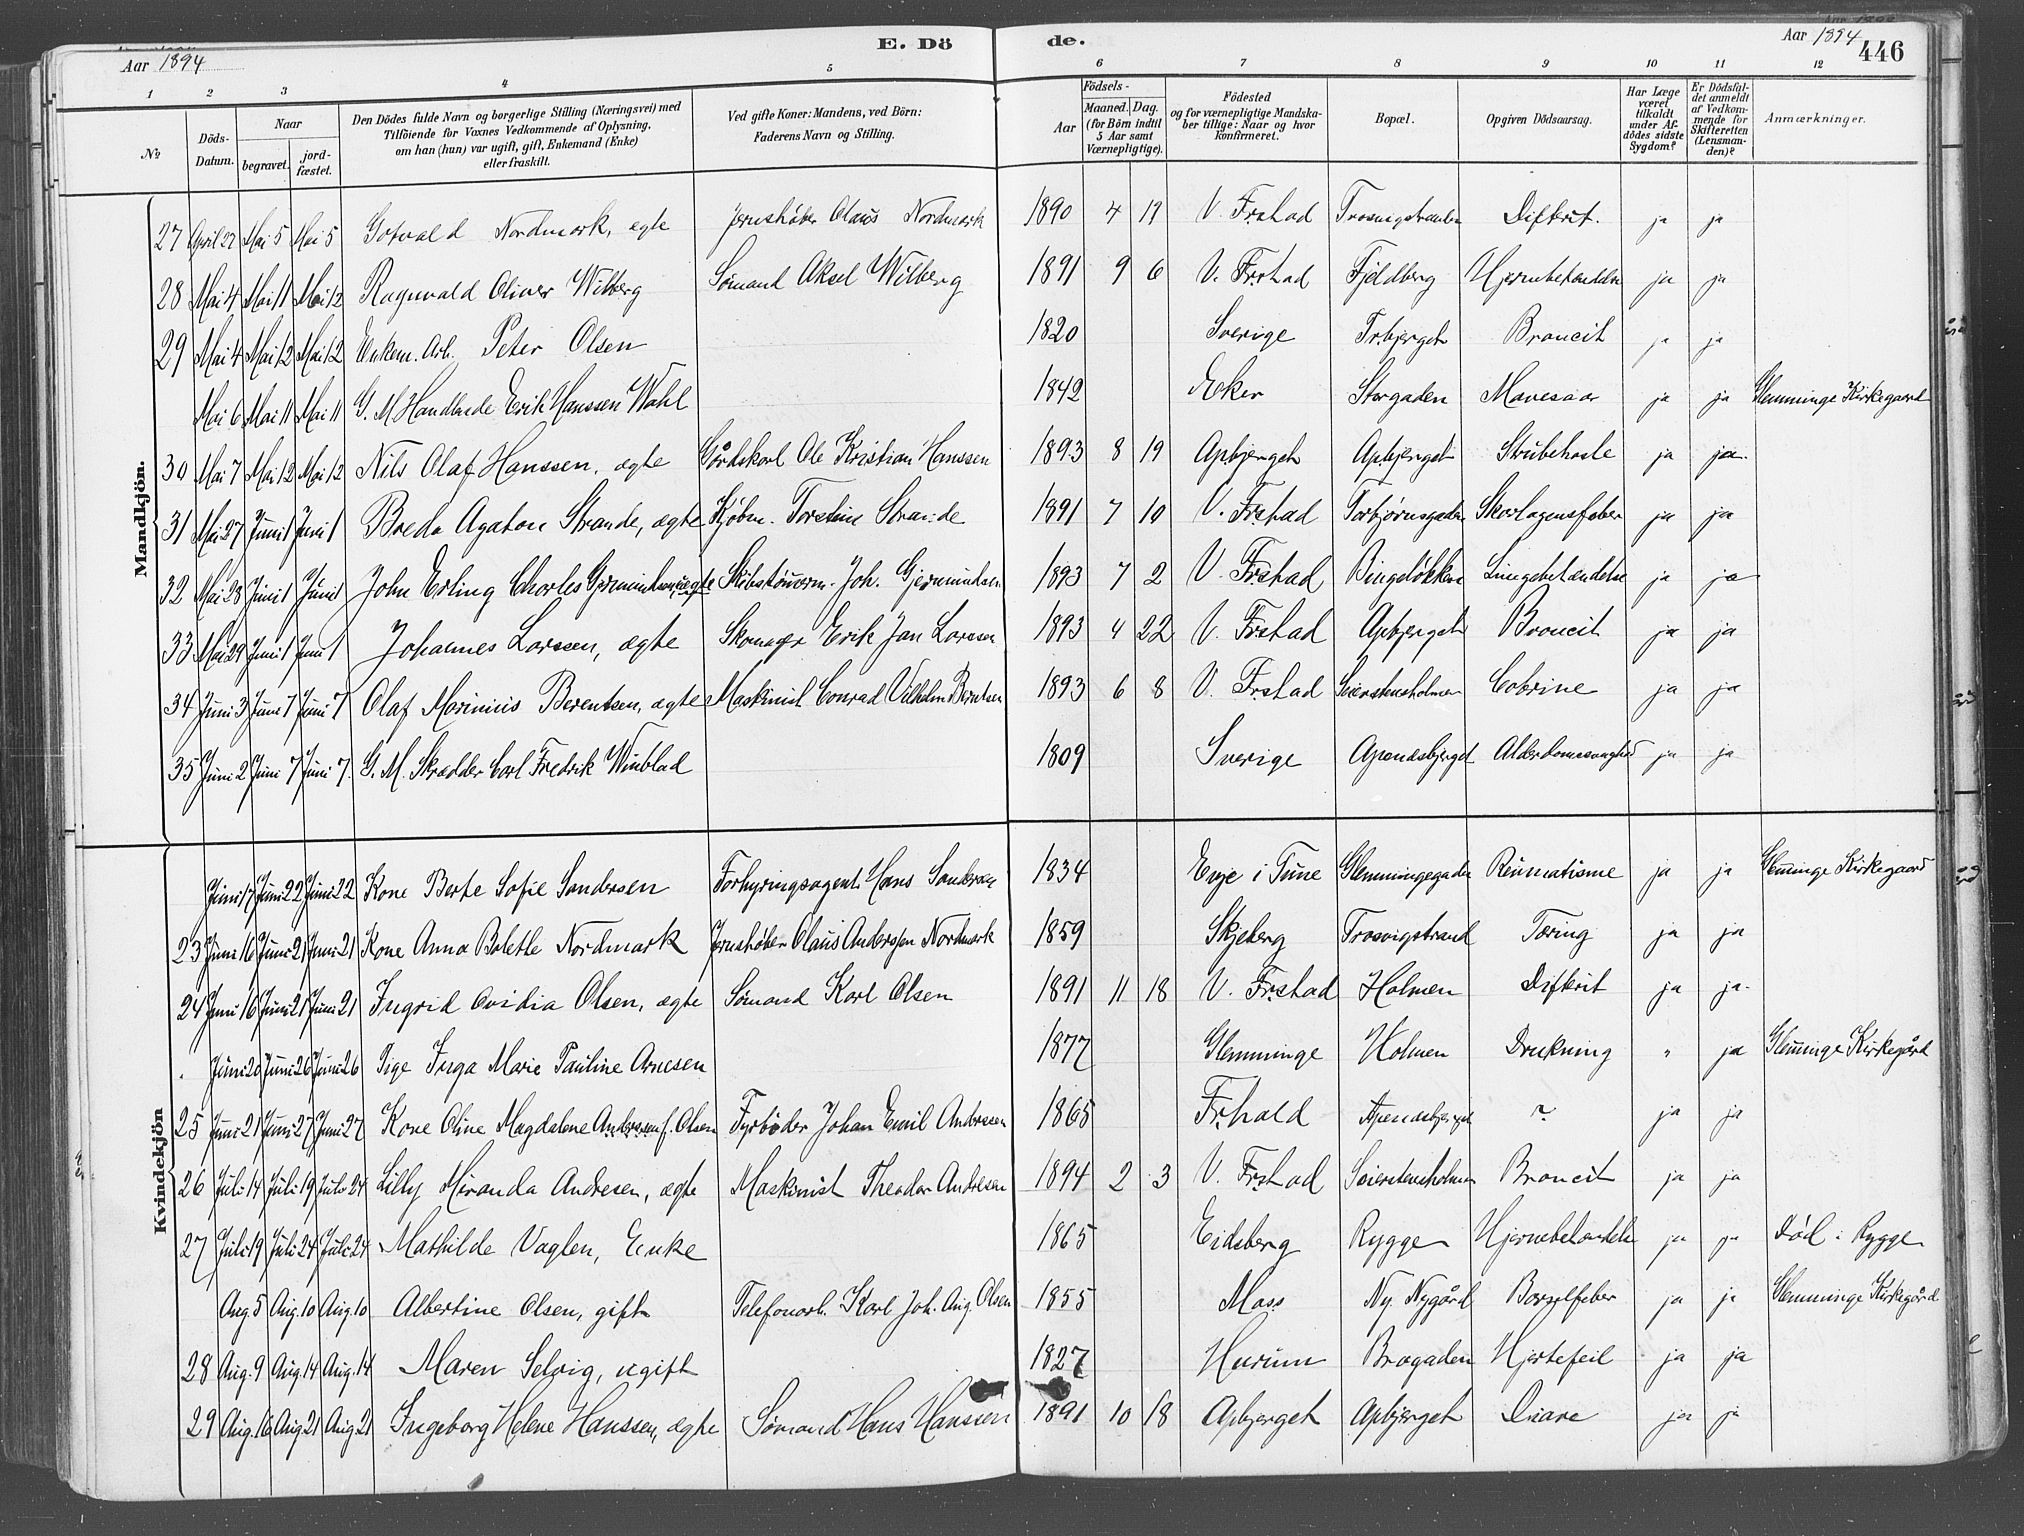 E. Dö de.
Aar 1894
Aar 1894 446
1 2 3 4 5 6 7 8 9 10 11 12
№ Döds-Datum. Naar begravet. jord-fæstet. Den Dödes fulde Navn og borgerlige Stilling (Næringsvei) med Tilföiende for Voxnes Vedkommende af Oplysning, om han (hun) var ugift, gift, Enkemand (Enke) eller fraskilt. Ved gifte Koner: Mandens, ved Börn: Faderens Navn og Stilling. Födsels- Aar Maaned. Dag. (for Börn indtil 5 Aar samt Værnepligtige). Födested og for værnepligtige Mandska-ber tillige: Naar og hvor konfirmeret. Bopæl. Opgiven Dödsaarsag. Har Læge været tilkaldt under Af-dödes sidste Sygdom? Er Dödsfal-det anmeldt af Vedkom-mende for Skifteretten (Lensman-den)? Anmærkninger.
Mandkjön.
27 April 27 Mai 5 Mai 5 Gotvald Nordmark, ægte Jernhøber Claus Nordmark 1890 4 19 V. Frstad Trosvigstranden Difterit. ja ja
28 Mai 4 Mai 11 Mai 12 Ragnvald Oliver Wilberg Sømand Aksel Wilberg 1891 9 6 V. Frstad Fjeldberg Hjernebetændelse ja ja
29 Mai 4 Mai 12 Mai 12 Enkem. Arb. Peter Olsen 1820 Sverige Broncit ja ja
Mai 6 Mai 11 Mai 11 G. M. Handlende Erik Hanssen Wahl 1842 Eker Storgaden Mavesaar ja ja Glemminge Kirkegaard
30 Mai 7 Mai 12 Mai 12 Nils Olaf Hanssen, ægte Gårdskarl Ole Kristian Hanssen 1893 8 19 Apbjerget Apbjerget Strubehoste ja ja.
31 Mai 27 Juni 1 Juni 1 Agaton Strande, ægte Kjøbm. Torstein Strande 1891 7 10 V. Frstad Torbjørnsgaden Skarlagensfeber ja ja
32 Mai 28 Juni 1 Juni 1 John Erling Charles Gjermundsen, ægte Skibstømerm. Joh. Gjermundsen 1893 7 2 V. Frstad Bingeløkken Lungebetændelse ja ja
33 Mai 29 Juni 1 Juni 1 Johannes Larssen, ægte Skomager Erik Jan Larssen 1893 4 22 V. Frstad Apbjerget Broncit ja ja
34 Juni 3 Juni 7 Juni 7 Olaf Marinius Berentsen, ægte Maskinist Conrad Vilhelm Berntsen 1893 6 8 V. Frstad Seierstensholmen Cobrine ja ja
35 Juni 2 Juni 7 Juni 7 G. M. Skrædder Carl Fredrik Winblad 1809 Sverige Apenæsbjerget Alderdomssvaghed ja ja
Kvindekjön
Juni 17 Juni 22 Juni 22 Kone Berte Sofie Sandersen Forhyringsagent Hans Sandersen 1834 Evje i Tune Glemmingegaden Reumatisme ja ja Glemminge Kirkegaard
23 Juni 16 Juni 21 Juni 21 Kone Anna Bolette Nordmark Jernhøber Claus Anderssen Nordmark 1859 Skjeberg Trosvigstrand Tæring ja ja
24 Juni 16 Juni 21 Juni 21 Ingrid Ovidia Olsen, ægte Sømand Karl Olsen 1891 11 18 V. Frstad Holmen Difterit ja ja.
Juni 20 Juni 26 Juni 26 Pige Inga Marie Pauline Arnesen 1877 Glemminge Holmen Drukning " ja Glemminge Kirkegård
25 Juni 21 Juni 27 Juni 27 Kone Oline Magdalene Andersen f. Olsen Fyrbøder Johan Emil Andresen 1865 Frhald Apenæsbjerget ? ja ja
26 Juli 14 Juli 19 Juli 24 Lilly Miranda Andresen, ægte Maskinist Theodor Andresen 1894 2 3 V. Frstad Seierstensholmen Broncit ja ja
27 Juli 19 Juli 24 Juli 24 Mathilde Vaglen, Enke 1865 Eidsberg Rygge Hjernebetændelse ja ja Død i Rygge
Aug. 5 Aug. 10 Aug. 10 Albertine Olsen, gift Telefonarb. Karl Joh. Aug. Olsen 1855 Moss Ny. Nygård Barselfeber ja ja Glemminge Kirkegård
28 Aug. 9 Aug. 14 Aug. 14 Maren Selvig, ugift 1827 Hurum Brogaden Hjertefeil ja ja
29 Aug. 16 Aug. 21 Aug. 21 Ingeborg Helene Hanssen, ægte Sømand Hans Hanssen 1891 10 18 Apbjerget Apbjerget Diare ja ja